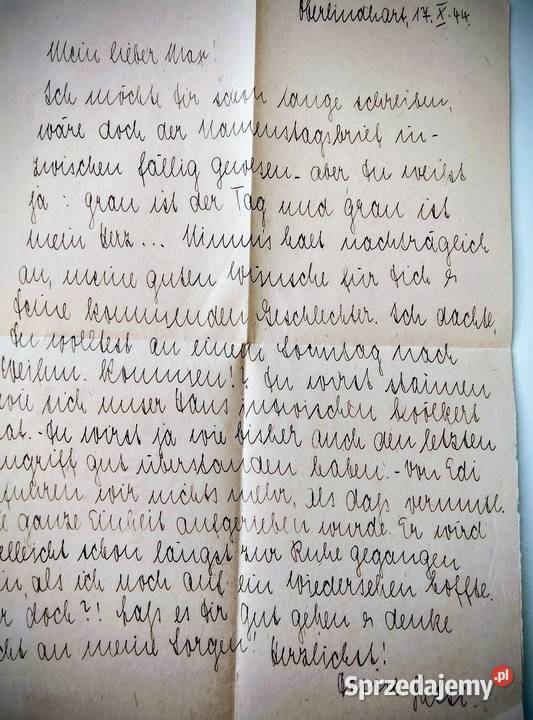 Oberlindhart, 17. X. 44.
Mein lieber Max!
Ich möchte Dir schon lange schreiben,
wäre doch der Namenstagsbrief in-
zwischen fällig gewesen - aber Du weißt
ja: grau ist der Tag und grau ist
mein Herz... Nimms halt nachträglich
an, meine guten Wünsche für Dich &
Deine kommenden Geschlechter. Ich dachte,
Du wolltest an einem Sonntag nach
kommen!? Du wirst staunen
wie sich unser Haus inzwischen bevölkert
hat. - Du wirst ja wie bisher auch den letzten
Angriff gut überstanden haben. - Von Edi
wir nichts mehr, als daß vermutl.
ganze Einheit aufgerieben wurde. Er wird
elleicht schon längst zur Ruhe gegangen
in, als ich noch auf ein Wiedersehen hoffte.
r doch?! Laß es Dir gut gehen & denke
cht an meine Sorgen! Herzlichst!
Sprzedajemy.pl